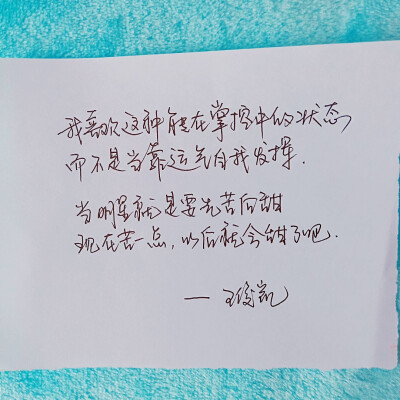 我喜欢这种能在掌控中的状态
而不是当靠运气自我发挥.
当明星就是要先苦后甜
现在苦一点,以后就会甜了吧.
— 王俊凯